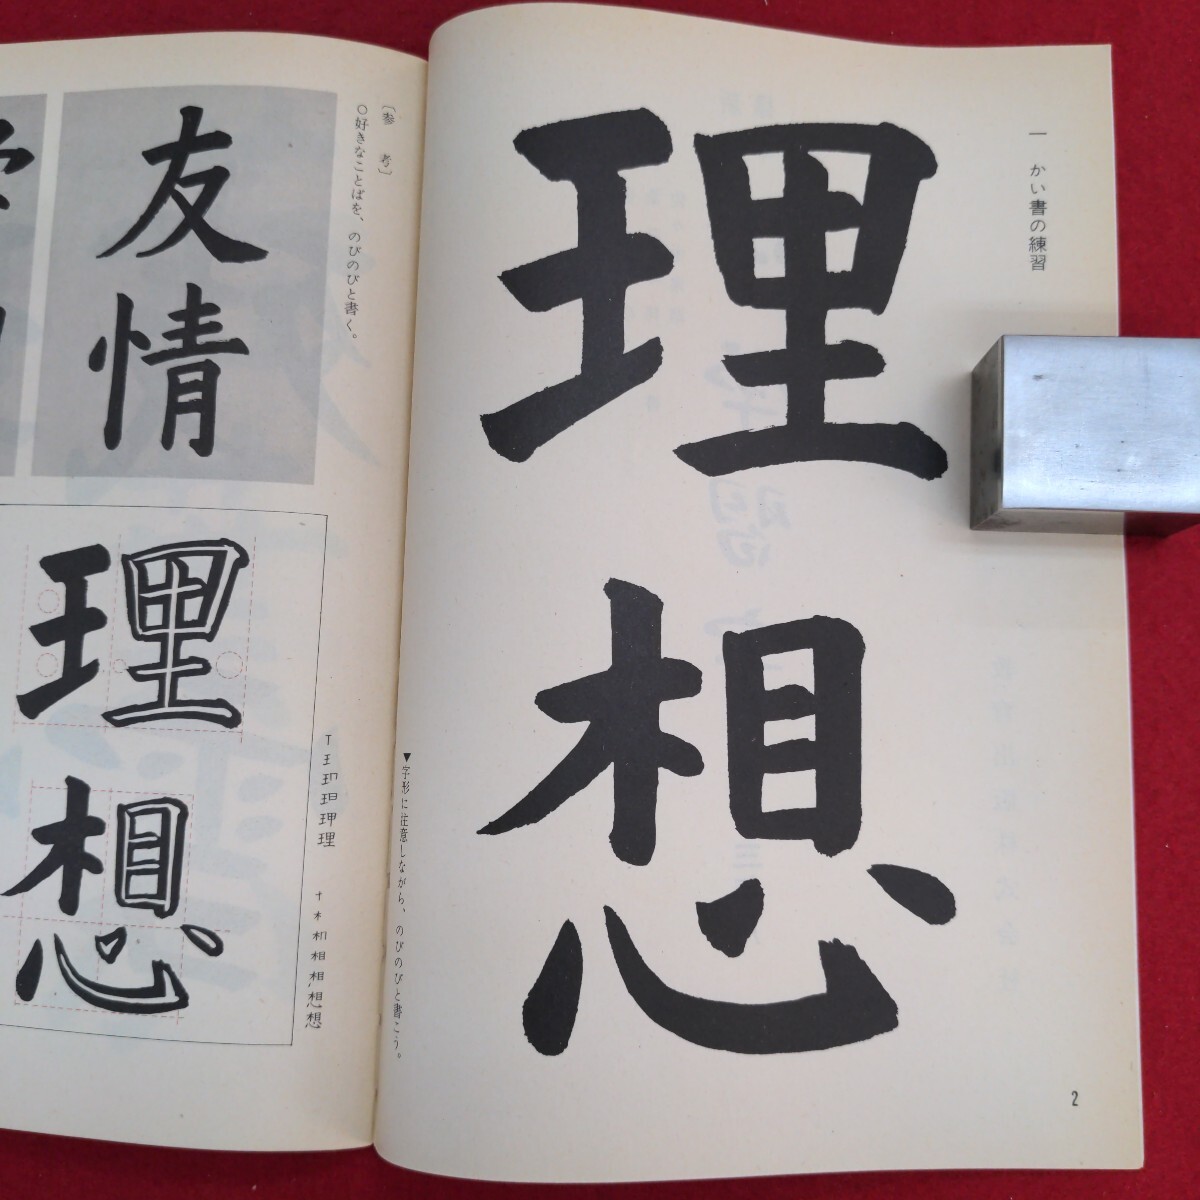 一 かい書の練習
理想
▼字形に注意しながら、のびのびと書こう。
2
〔参 考〕
○好きなことばを、のびのびと書く。
友情
理想